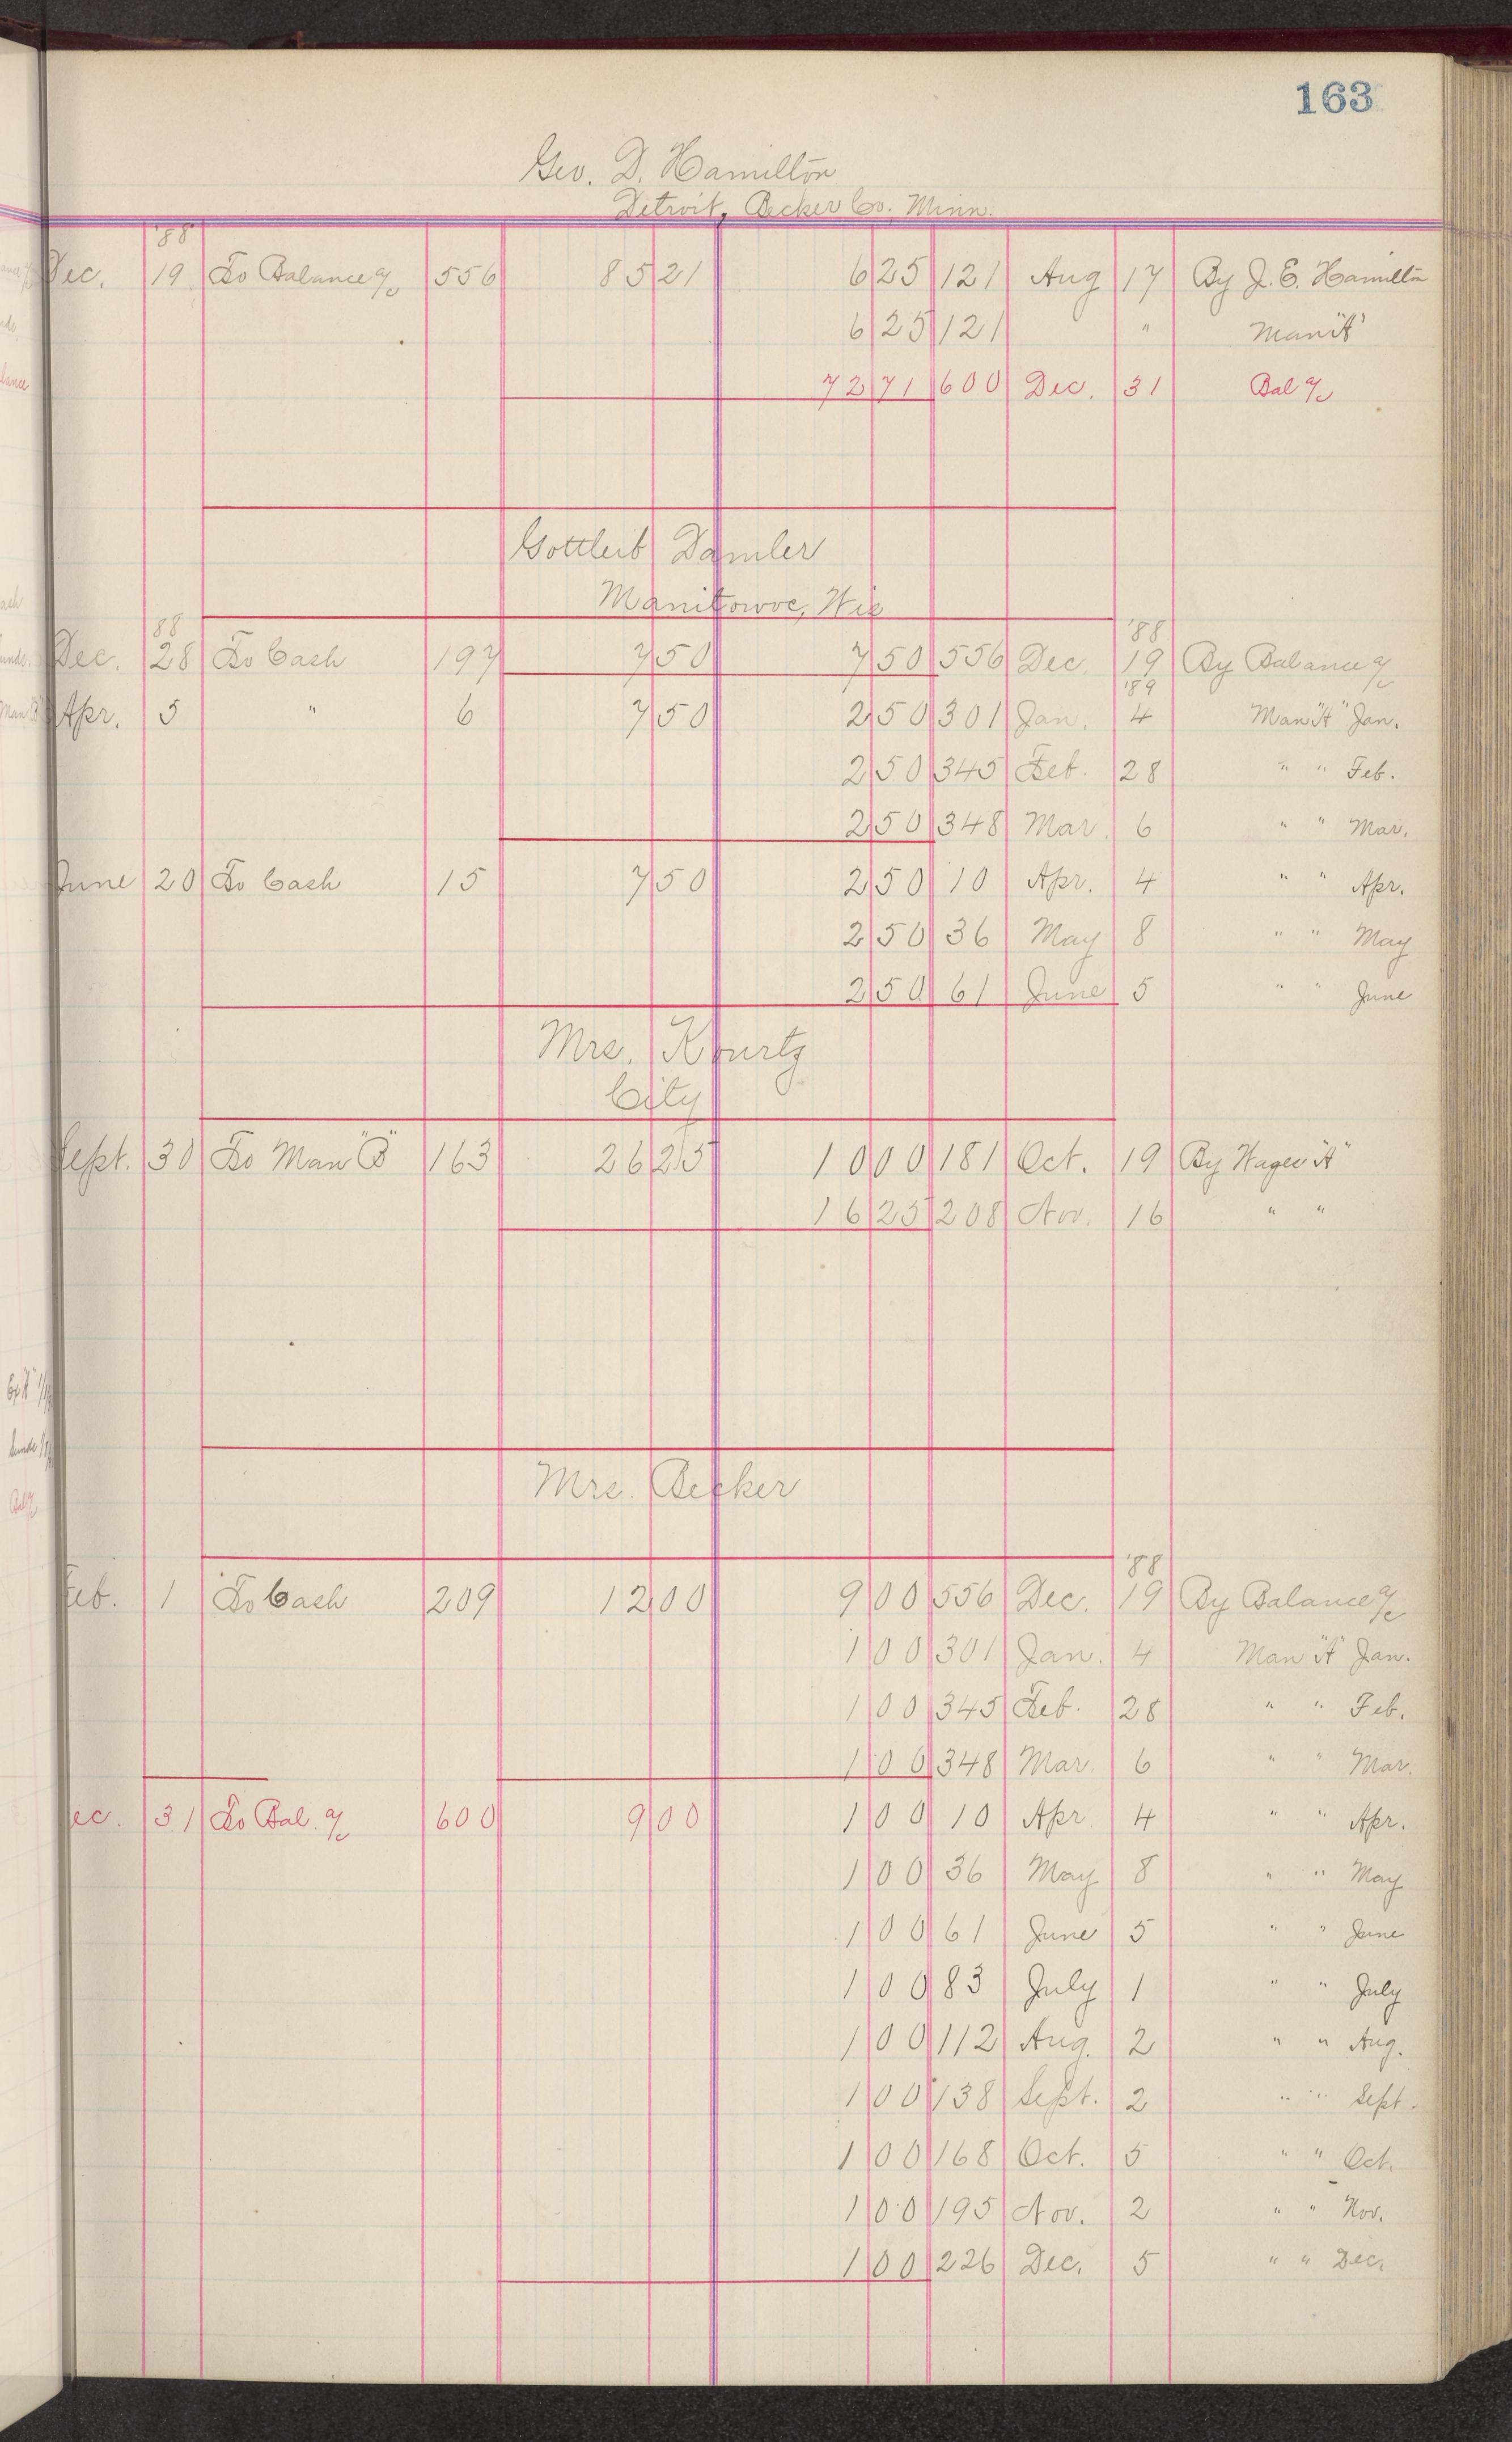 163
Geo. D. Hamilton
Detroit, Becker Co. Minn.
'88
Dec. 19 To Balance a/c 556 85 21 6 25 121 Aug 17 By J. E. Hamilton
6 25 121 " Man "A"
72 71 600 Dec. 31 Bal a/c
Gottleib Damler
Manitowoc, Wis
88 '88
Dec. 28 To Cash 197 7 50 7 50 556 Dec. 19 By Balance a/c
'89
Apr. 5 " 6 7 50 2 50 301 Jan. 4 Man "A" Jan.
2 50 345 Feb. 28 " " Feb.
2 50 348 Mar. 6 " " Mar.
June 20 To Cash 15 7 50 2 50 10 Apr. 4 " " Apr.
2 50 36 May 8 " " May
2 50 61 June 5 " " June
Mrs. Kourtz
City
Sept. 30 To Man "B" 163 26 25 10 00 181 Oct. 19 By Wages "A"
16 25 208 Nov. 16 " "
Mrs. Becker
'88
Feb. 1 To Cash 209 12 00 9 00 556 Dec. 19 By Balance a/c
1 00 301 Jan. 4 Man "A" Jan.
1 00 345 Feb. 28 " " Feb.
1 00 348 Mar. 6 " " Mar.
ec. 31 To Bal. a/c 600 9 00 1 00 10 Apr. 4 " " Apr.
1 00 36 May 8 " " May
1 00 61 June 5 " " June
1 00 83 July 1 " " July
1 00 112 Aug. 2 " " Aug.
1 00 138 Sept. 2 " " Sept.
1 00 168 Oct. 5 " " Oct.
1 00 195 Nov. 2 " " Nov.
1 00 226 Dec. 5 " " Dec.